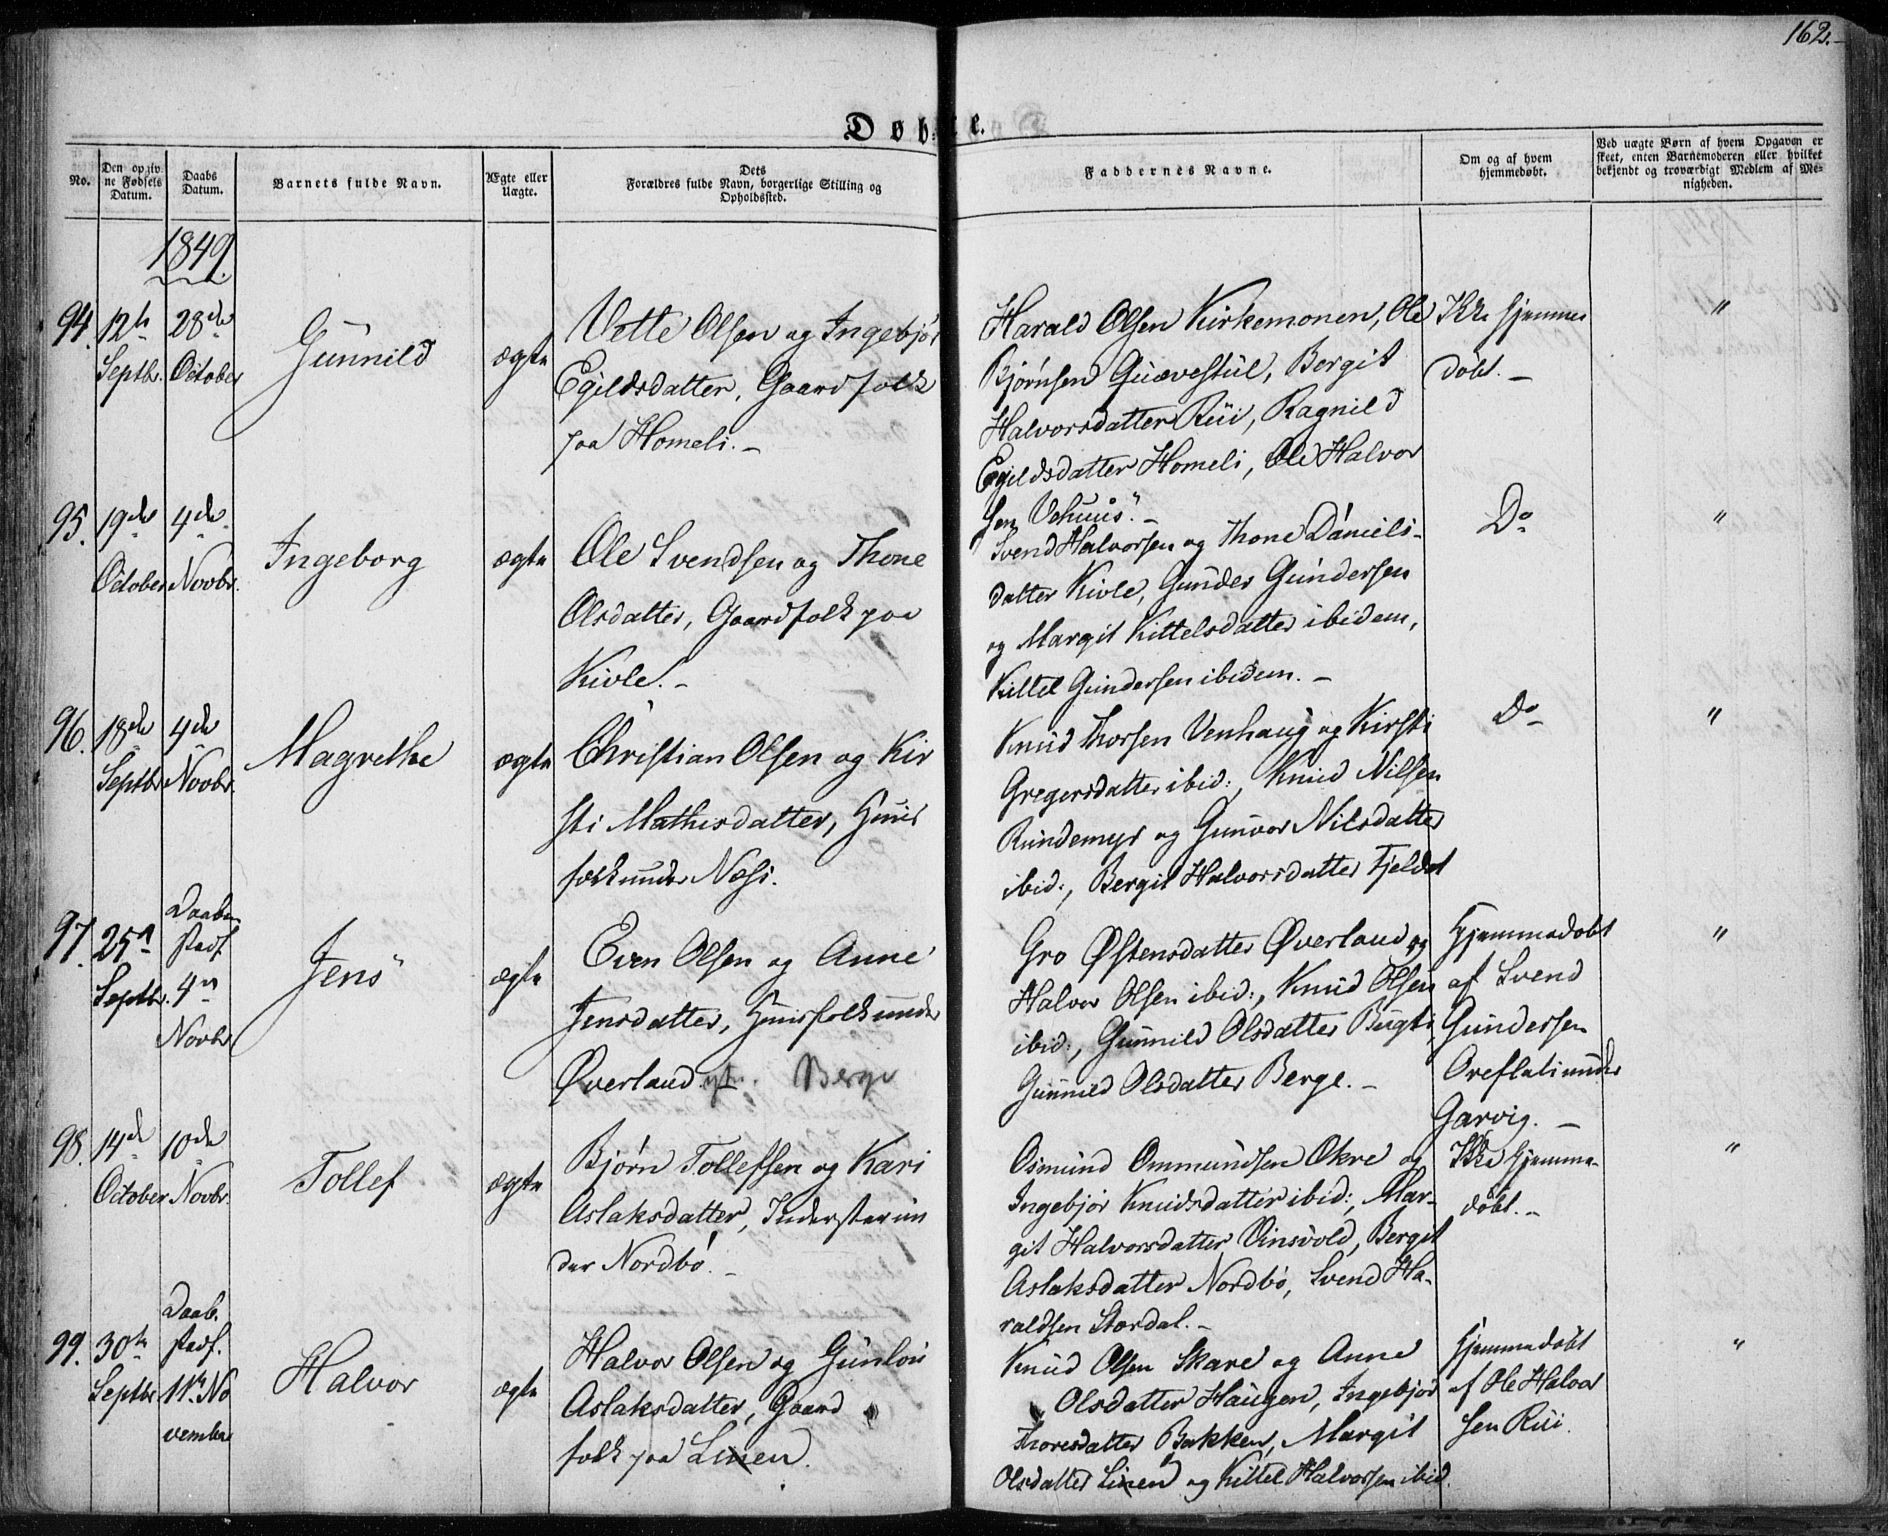 162.
Døbte.
No.
Den opgiv
ne Fødsels
Datum.
Daabs
Datum.
Barnets fulde Navn.
Ægte eller
Uægte.
Dets
Forældres fulde Navn, borgerlige Stilling og
Opholdssted.
Faddernes Navne.
Om og af hvem
hjemmedøbt.
Ved uægte Børn af hvem Opgaven er
skeet, enten Barnemoderen eller hvilket
bekjendt og troværdigt Medlem af Me-
nigheden.
1849.
94.
12te
Septbr.
28de
October
Gunnild
ægte
Vetle Olsen og Ingebjør
Egildsdatter, Gaardfolk
paa Homeli.-
Harald Olsen Kirkemonen, Ole
Bjørnsen Guævestul, Bergit
Halvorsdatter Rui, Ragnild
Egildsdatter Homeli, Ole Halvor
sen Vehuus.-
Ikke hjemme
døbt.-
"
95.
19de
October
4de
Novbr.
Ingeborg
ægte
Ole Svendsen og Thone
Olsdatter, Gaardfolk paa
Kivle.-
Svend Halvorsen og Thone Daniels-
datter Kivle, Gunder Gundersen
og Margit Kittelsdatter ibidem,
Kittel Gundersen ibidem.-
Do
"
96.
18de
Septbr
4de
Novbr.
Magrethe
ægte
Christian Olsen og Kir
sti Mathisdatter, Huus
folk under Næss.
Knud Thorsen Venhaug og Kirsti
Gregersdatter ibid:, Knud Nilsen
Rundemyr og Gunvor Nilsdatter
ibid:, Bergit Halvorsdatter Fjeldet
Do
"
97.
25de
Septbr.
Daaben
stadf.
4de
Novbr
Jens
ægte
Even Olsen og Anne
Jensdatter, Huusfolk under
Øverland. Berge
Gro Østensdatter Øverland og
Halvor Olsen ibid:, Knud Olsen
ibid:, Gunnild Olsdatter Bugti,
Gunnild Olsdatter Berge.-
Hjemmedøbt
af Svend
Gundersen
Oreflati under
Garvig.-
"
98.
14de
October
10de
Novbr.
Tollef
ægte
Bjørn Tollefsen og Kari
Aslaksdatter, Inderster un
der Nordbø.-
Osmund Ommundsen Okre og
Ingebjør Knudsdatter ibid:, Mar-
git Halvorsdatter Vinsvold, Bergit
Aslaksdatter Nordbø, Svend Ha-
raldsen Stordal.-
Ikke hjemme-
døbt.-
"
99.
30te
Septbr.
Daab.
stadf.
11te No
vember
Halvor
ægte
Halvor Olsen og Gunlou
Aslaksdatter, Gaard
folk paa Linen.
Knud Olsen Skare og Anne
Olsdatter Haugen, Ingebjør
Thoresdatter Bakken, Margit
Olsdatter Linen og Kittel Halvorsen ibid.
Hjemmedøbt
af Ole Halvor
sen Rui.
"